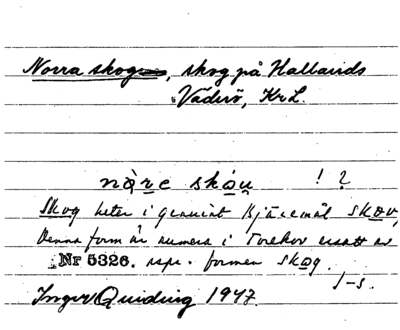 Norra skog, skog på Hallands
Väderö, KrL.
nọ̀r̲e sko̲u̲ ! ?
Skog heter i genuint Bjäremål skov,
Denna form är numera i Torekov ersatt av
Nr 5326. resp. formen skog.
J-s.
Inger Quiding 1947.